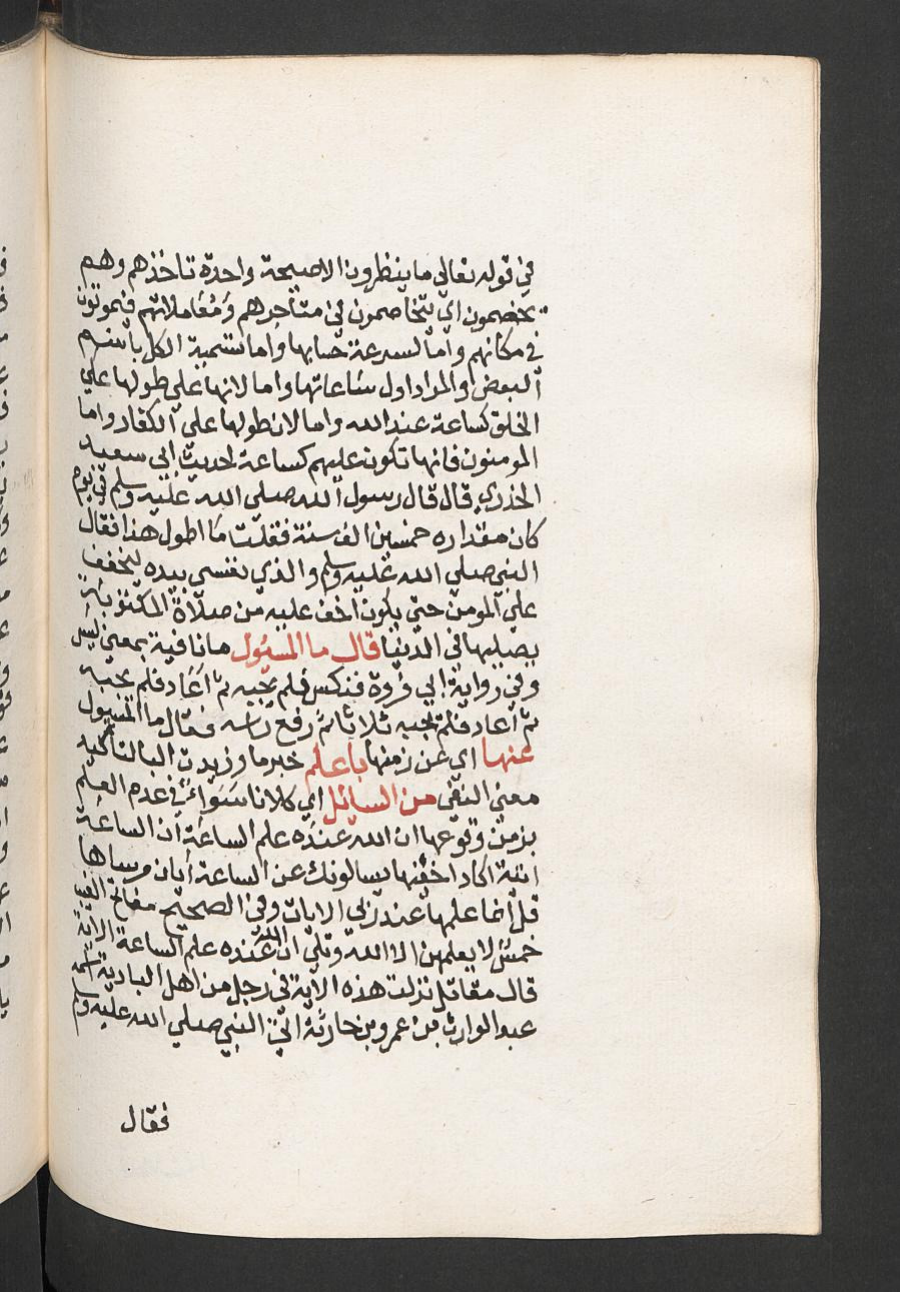 في قوله تعالي ما ينظرون الا صيحة واحدة تاخذهم وهم
يخصمون اي يتخاصمون في متاجرهم ومُعَاملاتهم فيموتون
في مكانهم واما لسرعة حسابها واما تسمية الكل باسم
البعض والمراد اول ساعاتها واما لانها علي طولها علي
الخلق كساعة عند الله واما لان طولها علي الكفار واما
المومنون فانها تكون عليهم كساعة لحديث ابي سعيد
الخدري قال قال رسول الله صلي الله عليه وسلم في يوم
كان مقداره خمسين الف سنة فقلت ما اطول هذا فقال
النبي صلي الله عليه وسلم والذي نفسي بيده ليخفف
علي المومن حتي يكون اخف عليه من صلاة المكتوبة
يصليها في الدنيا قال ما المسئول ما نافية بمعني ليس
وفي رواية ابي فروة فنكس فلم يجبه ثم اعاد فلم يجبه
ثم اعاد فلم يجبه ثلاثا ثم رفع راسه فقال ما المسئول
عنها اي عن زمنها باعلم خبر ما وزيدت البا لتاكيد
معني النفي من السائل اي كلانا سَوَاءٌ في عدم العلم
بزمن وقوعها ان الله عنده علم الساعة ان الساعة
اتية اكاد اخفيها يسالونك عن الساعة أيان مرساها
قل انما علمها عند ربي الايات وفي الصحيح مفاتح الغيب
خمس لا يعلمهن الا الله وتلي ان الله عنده علم الساعة الاية
قال مقاتل نزلت هذه الاية في رجل من اهل البادية اسمه
عبد الوارث بن عمرو بن حارثة اتي النبي صلي الله عليه وسلم
فقال